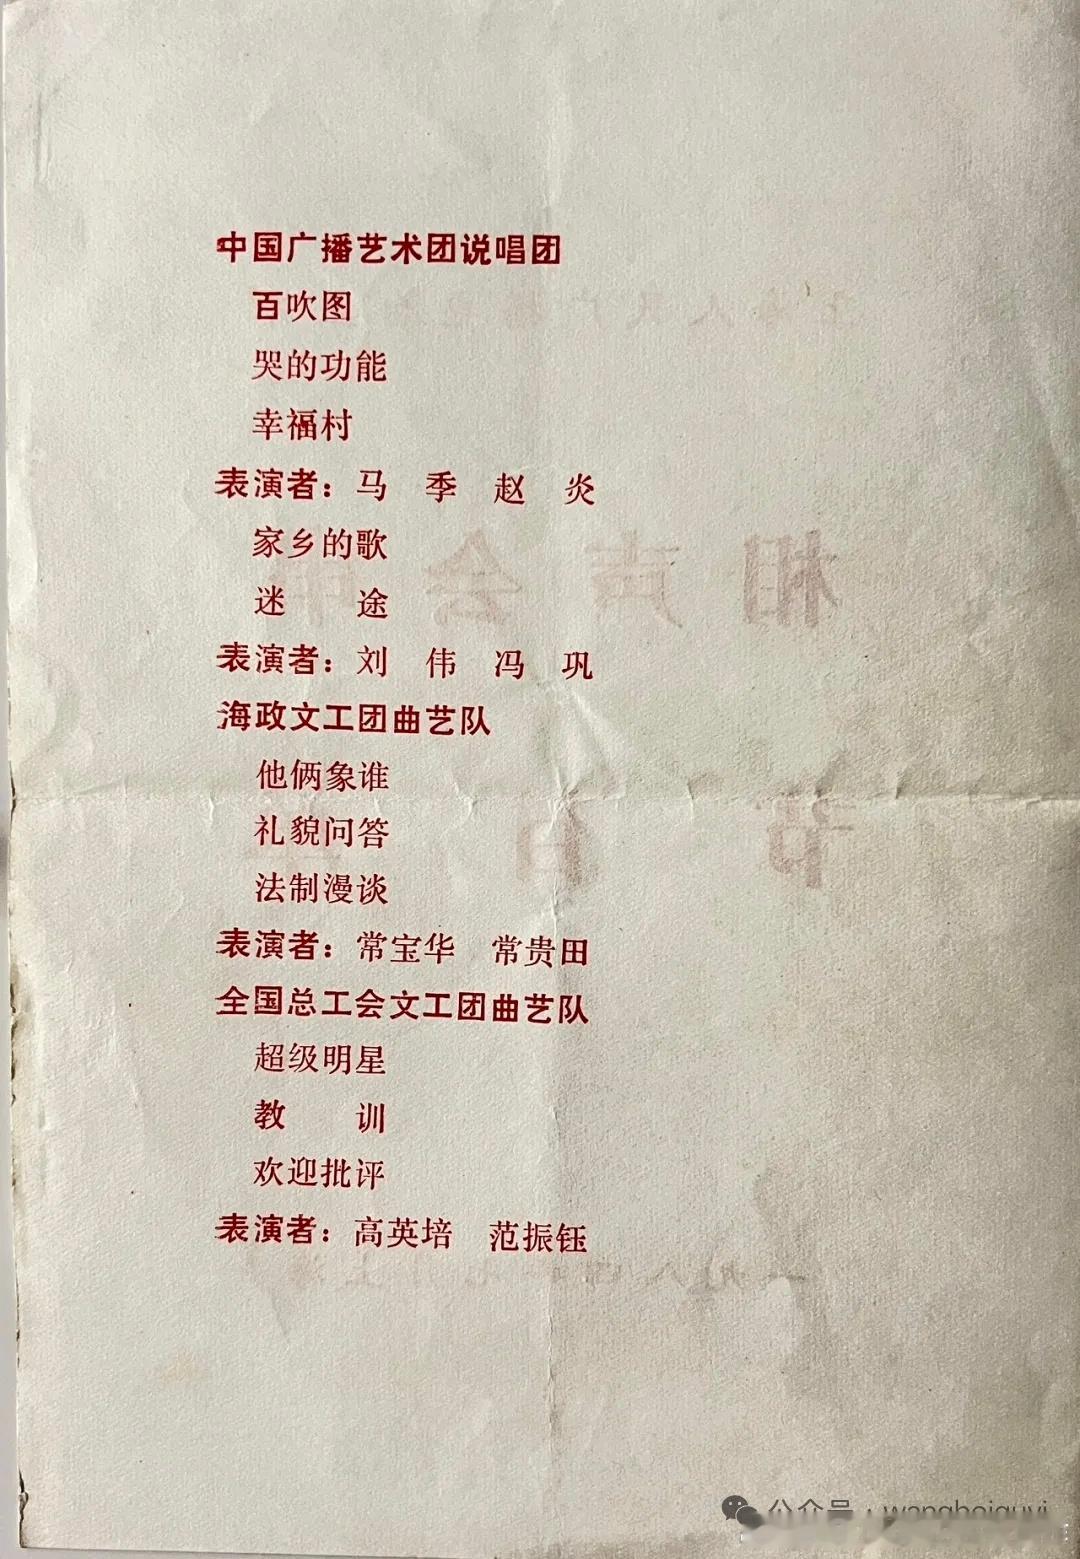 中国广播艺术团说唱团
百吹图
哭的功能
幸福村
表演者：马　季　赵　炎
家乡的歌
迷　　途
表演者：刘　伟　冯　巩
海政文工团曲艺队
他俩象谁
礼貌问答
法制漫谈
表演者：常宝华　常贵田
全国总工会文工团曲艺队
超级明星
教　　训
欢迎批评
表演者：高英培　范振钰
相声会
节目
公众号